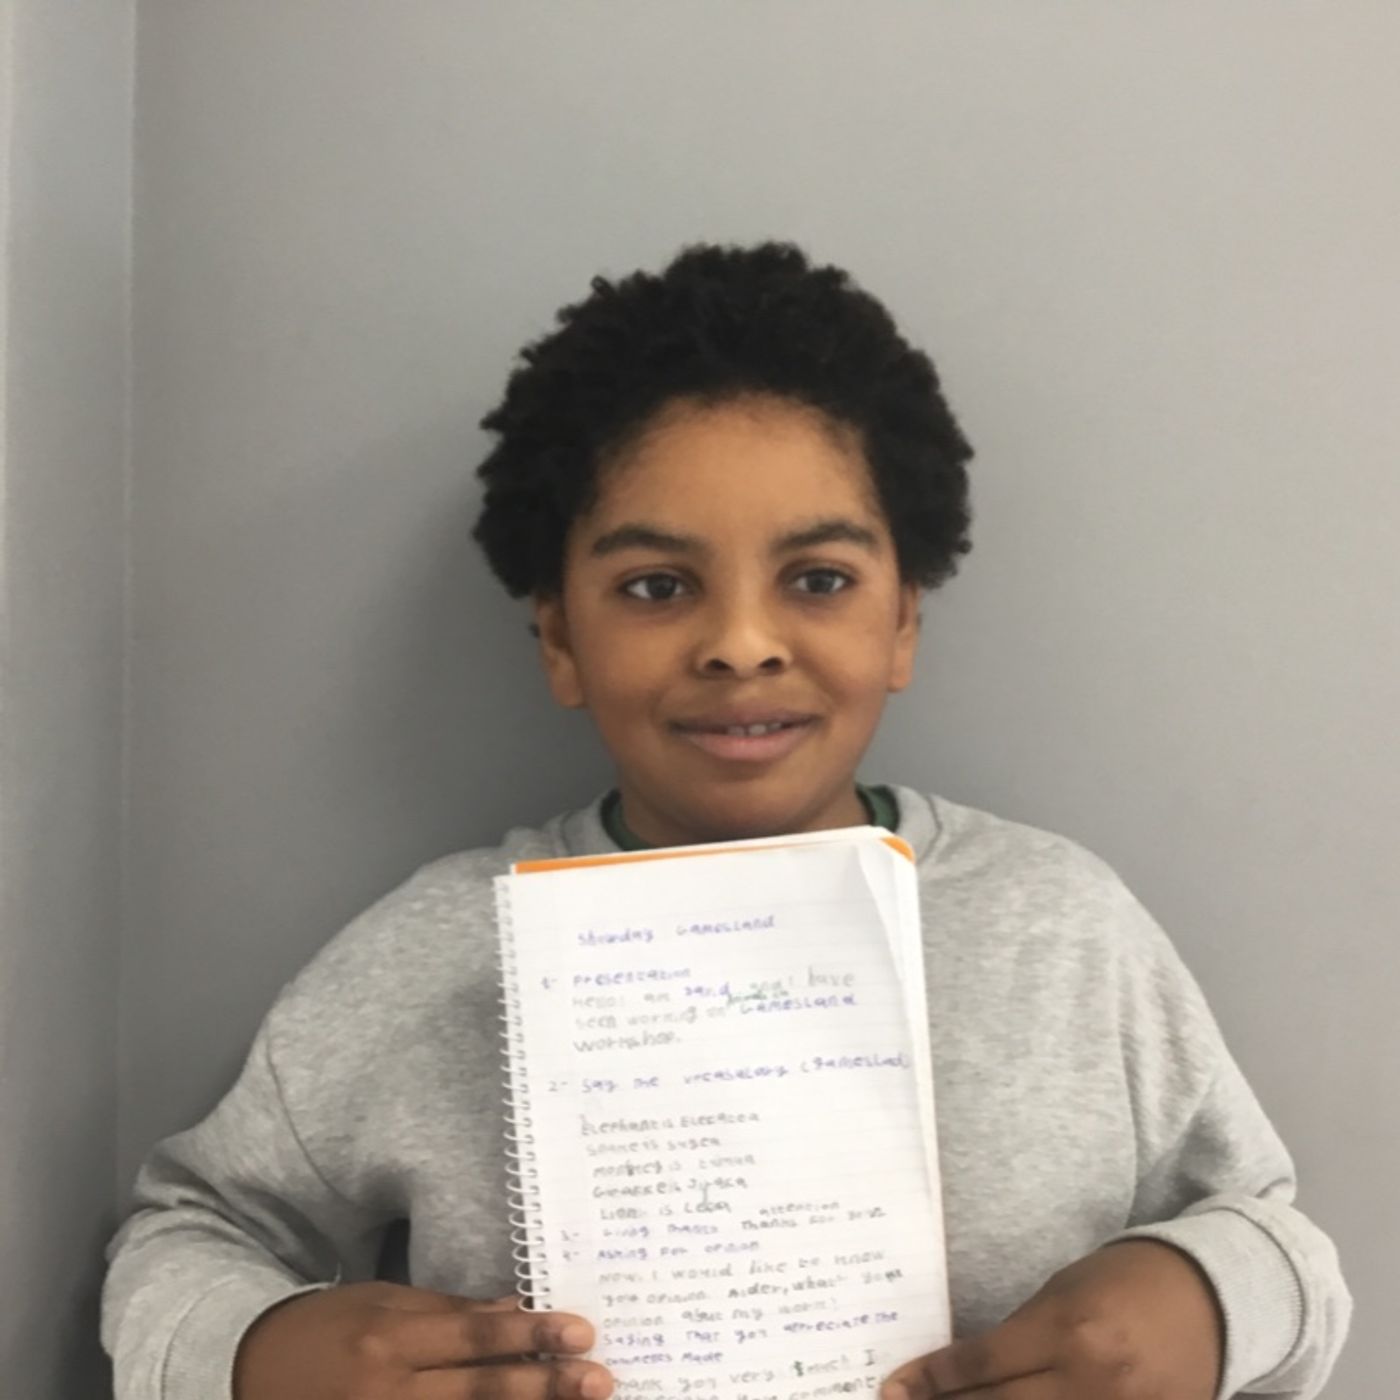 Showday GamesLand
1- Presentation
Hello! am and I have
been working on GamesLand
workshop.
2- Say the vocabulary (GamesLad)
Elephant is Elefatea
Snake is sugea
monkey is tximua
Giraffe is Jirafa
Lion is Leoa attention
3- Giving thanks Thanks for your
4- Asking for opinion
Now, I would like to know
your opinion. Aider, what your
opinion about my work?
Saying that you appreciate the
comments Made
Thank you very much I